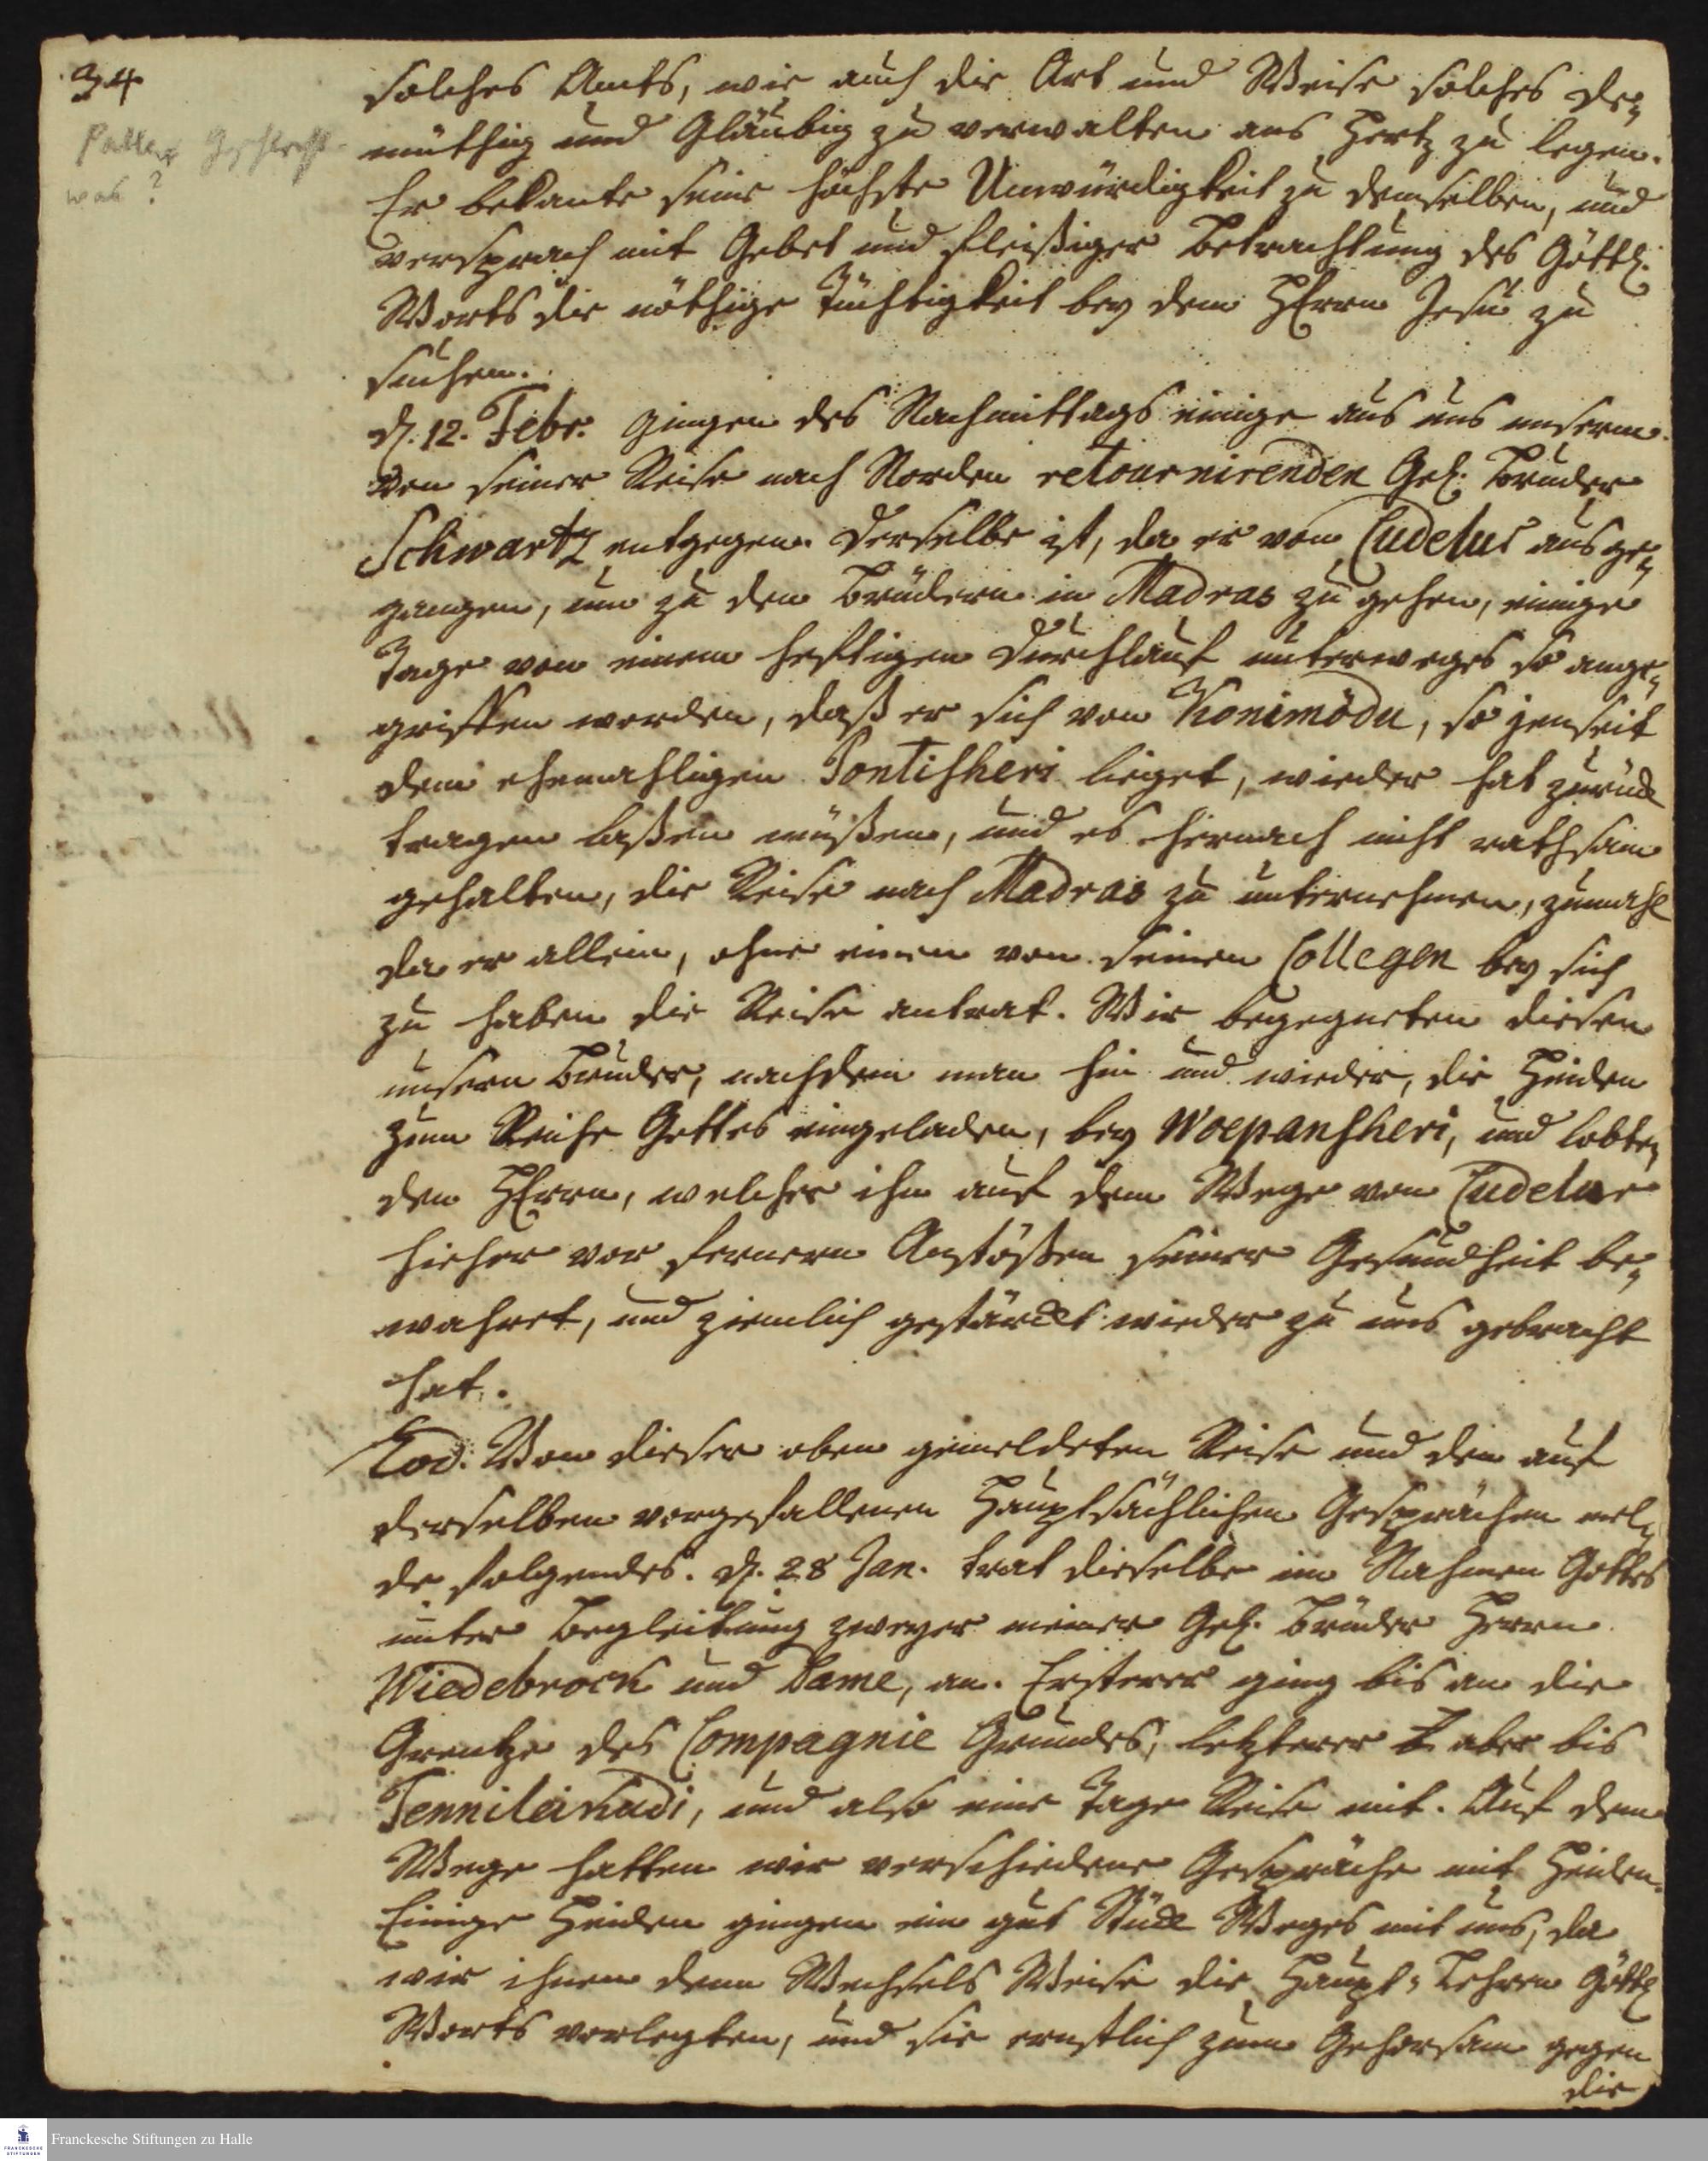 34.
solches Amts, wie auch die Art und Weise solches de„
müthig und Gläubig zu verwalten ans Hertz zu legen.
was?
Er bekante seine höchste Unwürdigkeit zu demselben, und
versprach mit Gebet und fleißiger Betrachtung des Göttl.
Worts die nöthige Tüchtigkeit bey dem HErrn Jesu zu
suchen.
d. 12. Febr. gingen des Nachmittags einige aus uns unserm
von seiner Reise nach Norden retournirenden Gel. Bruder
Schwartz entgegen. Derselbe ist, da er von Cudelur ausge„
gangen, um zu den Brüdern in Madras zu gehen, einige
Tage von einem heftigen Durchlauf unterweges so ange„
griffen worden, daß er sich von Konimödu, so jenseit
dem ehemahligen Pontischeri lieget, wieder hat zurück
tragen laßen müßen, und es hernach nicht rathsam
gehalten, die Reise nach Madras zu unternehmen, zumahl
da er allein, ohne einen von seinen Collegen bey sich
zu haben die Reise antrat. Wir begegneten diesen
unsern Bruder, nachdem man hin und wieder, die Heiden
zum Reiche Gottes eingeladen, bey Woepanscheri, und lobten
den HErrn, welcher ihn auf dem Wege von Cudelur
hieher vor fernern Anstößen seiner Gesundheit be„
wahret, und ziemlich gestärckt wieder zu uns gebracht
hat.
Eod. Von dieser oben gemeldeten Reise und den auf
derselben vorgefallenen Hauptsächlichen Gesprächen mel„
de folgendes. d. 28 Jan. trat dieselbe im Nahmen Gottes
unter Begleitung zweyer meiner Gel. Brüder Herrn
Wiedebrock und Dame, an. Ersterer ging bis an die
Grentze des Compagnie Grundes, letzterer aber bis
Tennileikudi, und also eine Tage Reise mit. Auf dem
Wege hatten wir verschiedene Gespräche mit Heiden.
Einige Heiden gingen ein gut Stück Weges mit uns, da
wir ihnen denn Wechsels Weise die Haupt-Lehren Göttl
Worts vorlegten, und sie ernstlich zum Gehorsam gegen
die
Franckesche Stiftungen zu Halle
FRANCKESCHE
STIFTUNGEN